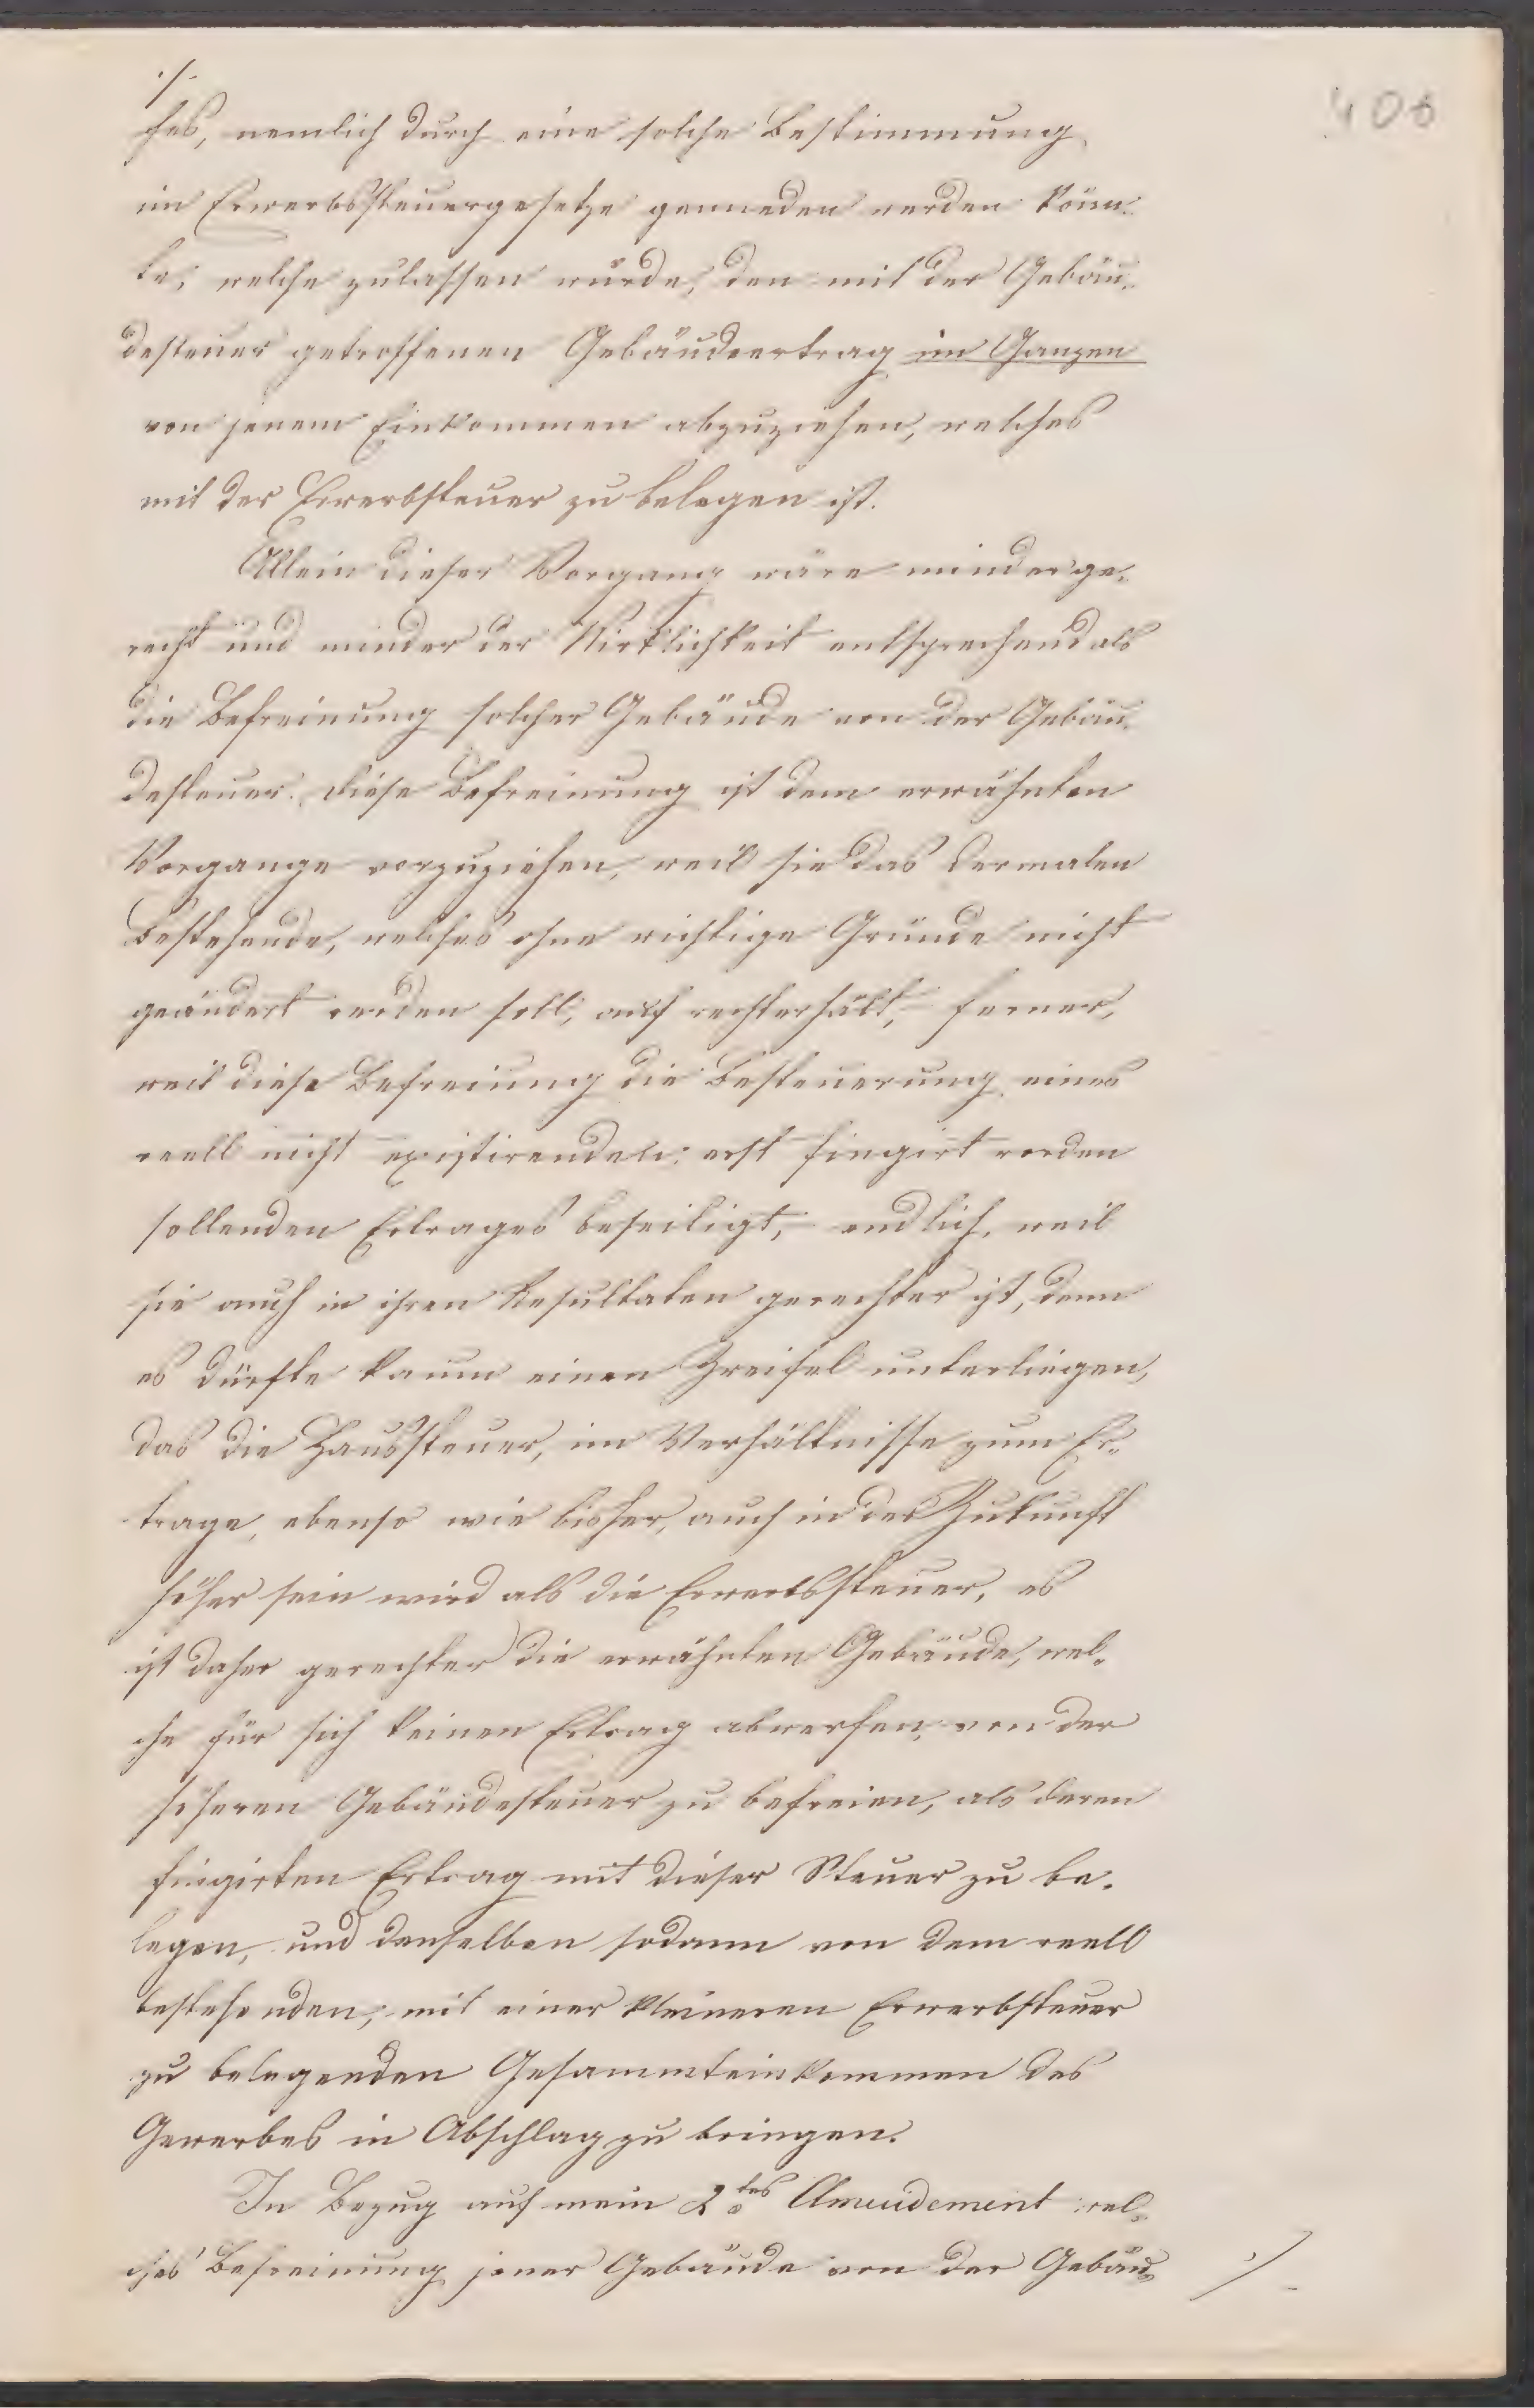 ./.
ches, nemlich durch eine solche Bestimmung
im Erwerbssteuergesetze gemieden werden könn-
te, welche zulassen würde, den mit der Gebäu-
desteuer getroffenen Gebäudeertrag im Ganzen
von jenem Einkommen abzuziehen, welches
mit der Erwerbsteuer zu belegen ist.
Allein dieser Vorgang wäre minder ge-
recht und minder der Wirklichkeit entsprechend als
die Befreiung solcher Gebäude von der Gebäu-
desteuer. Diese Befreiung ist dem erwähnten
Vorgange vorzuziehen, weil sie das dermalen
Bestehende, welches ohne wichtige Gründe nicht
geändert werden soll, aufrechterhält, ferner,
weil diese Befreiung die Besteuerung eines
reell nicht existirenden: erst fingirt werden
sollenden Ertrages beseitigt, endlich, weil
sie auch in ihren Resultaten gerechter ist, denn
es dürfte kaum einen Zweifel unterliegen,
das die Haussteuer, im Verhältnisse zum Er-
trage, ebenso wie bisher, auch in der Zukunft
höher sein wird als die Erwerbssteuer, es
ist daher gerechter die erwähnten Gebäude, wel-
che für sich keinen Ertrag abwerfen, von der
höheren Gebäudesteuer zu befreien, als deren
fingirten Ertrag mit dieser Steuer zu be-
legen, und denselben sodann von dem reell
bestehenden, mit einer kleineren Erwerbsteuer
zu belegenden Gesammteinkommen des
Gewerbes in Abschlag zu bringen.
In Bezug auf mein 2tes Amendement wel-
ches Befreiung jener Gebäude von der Gebäu-
./.